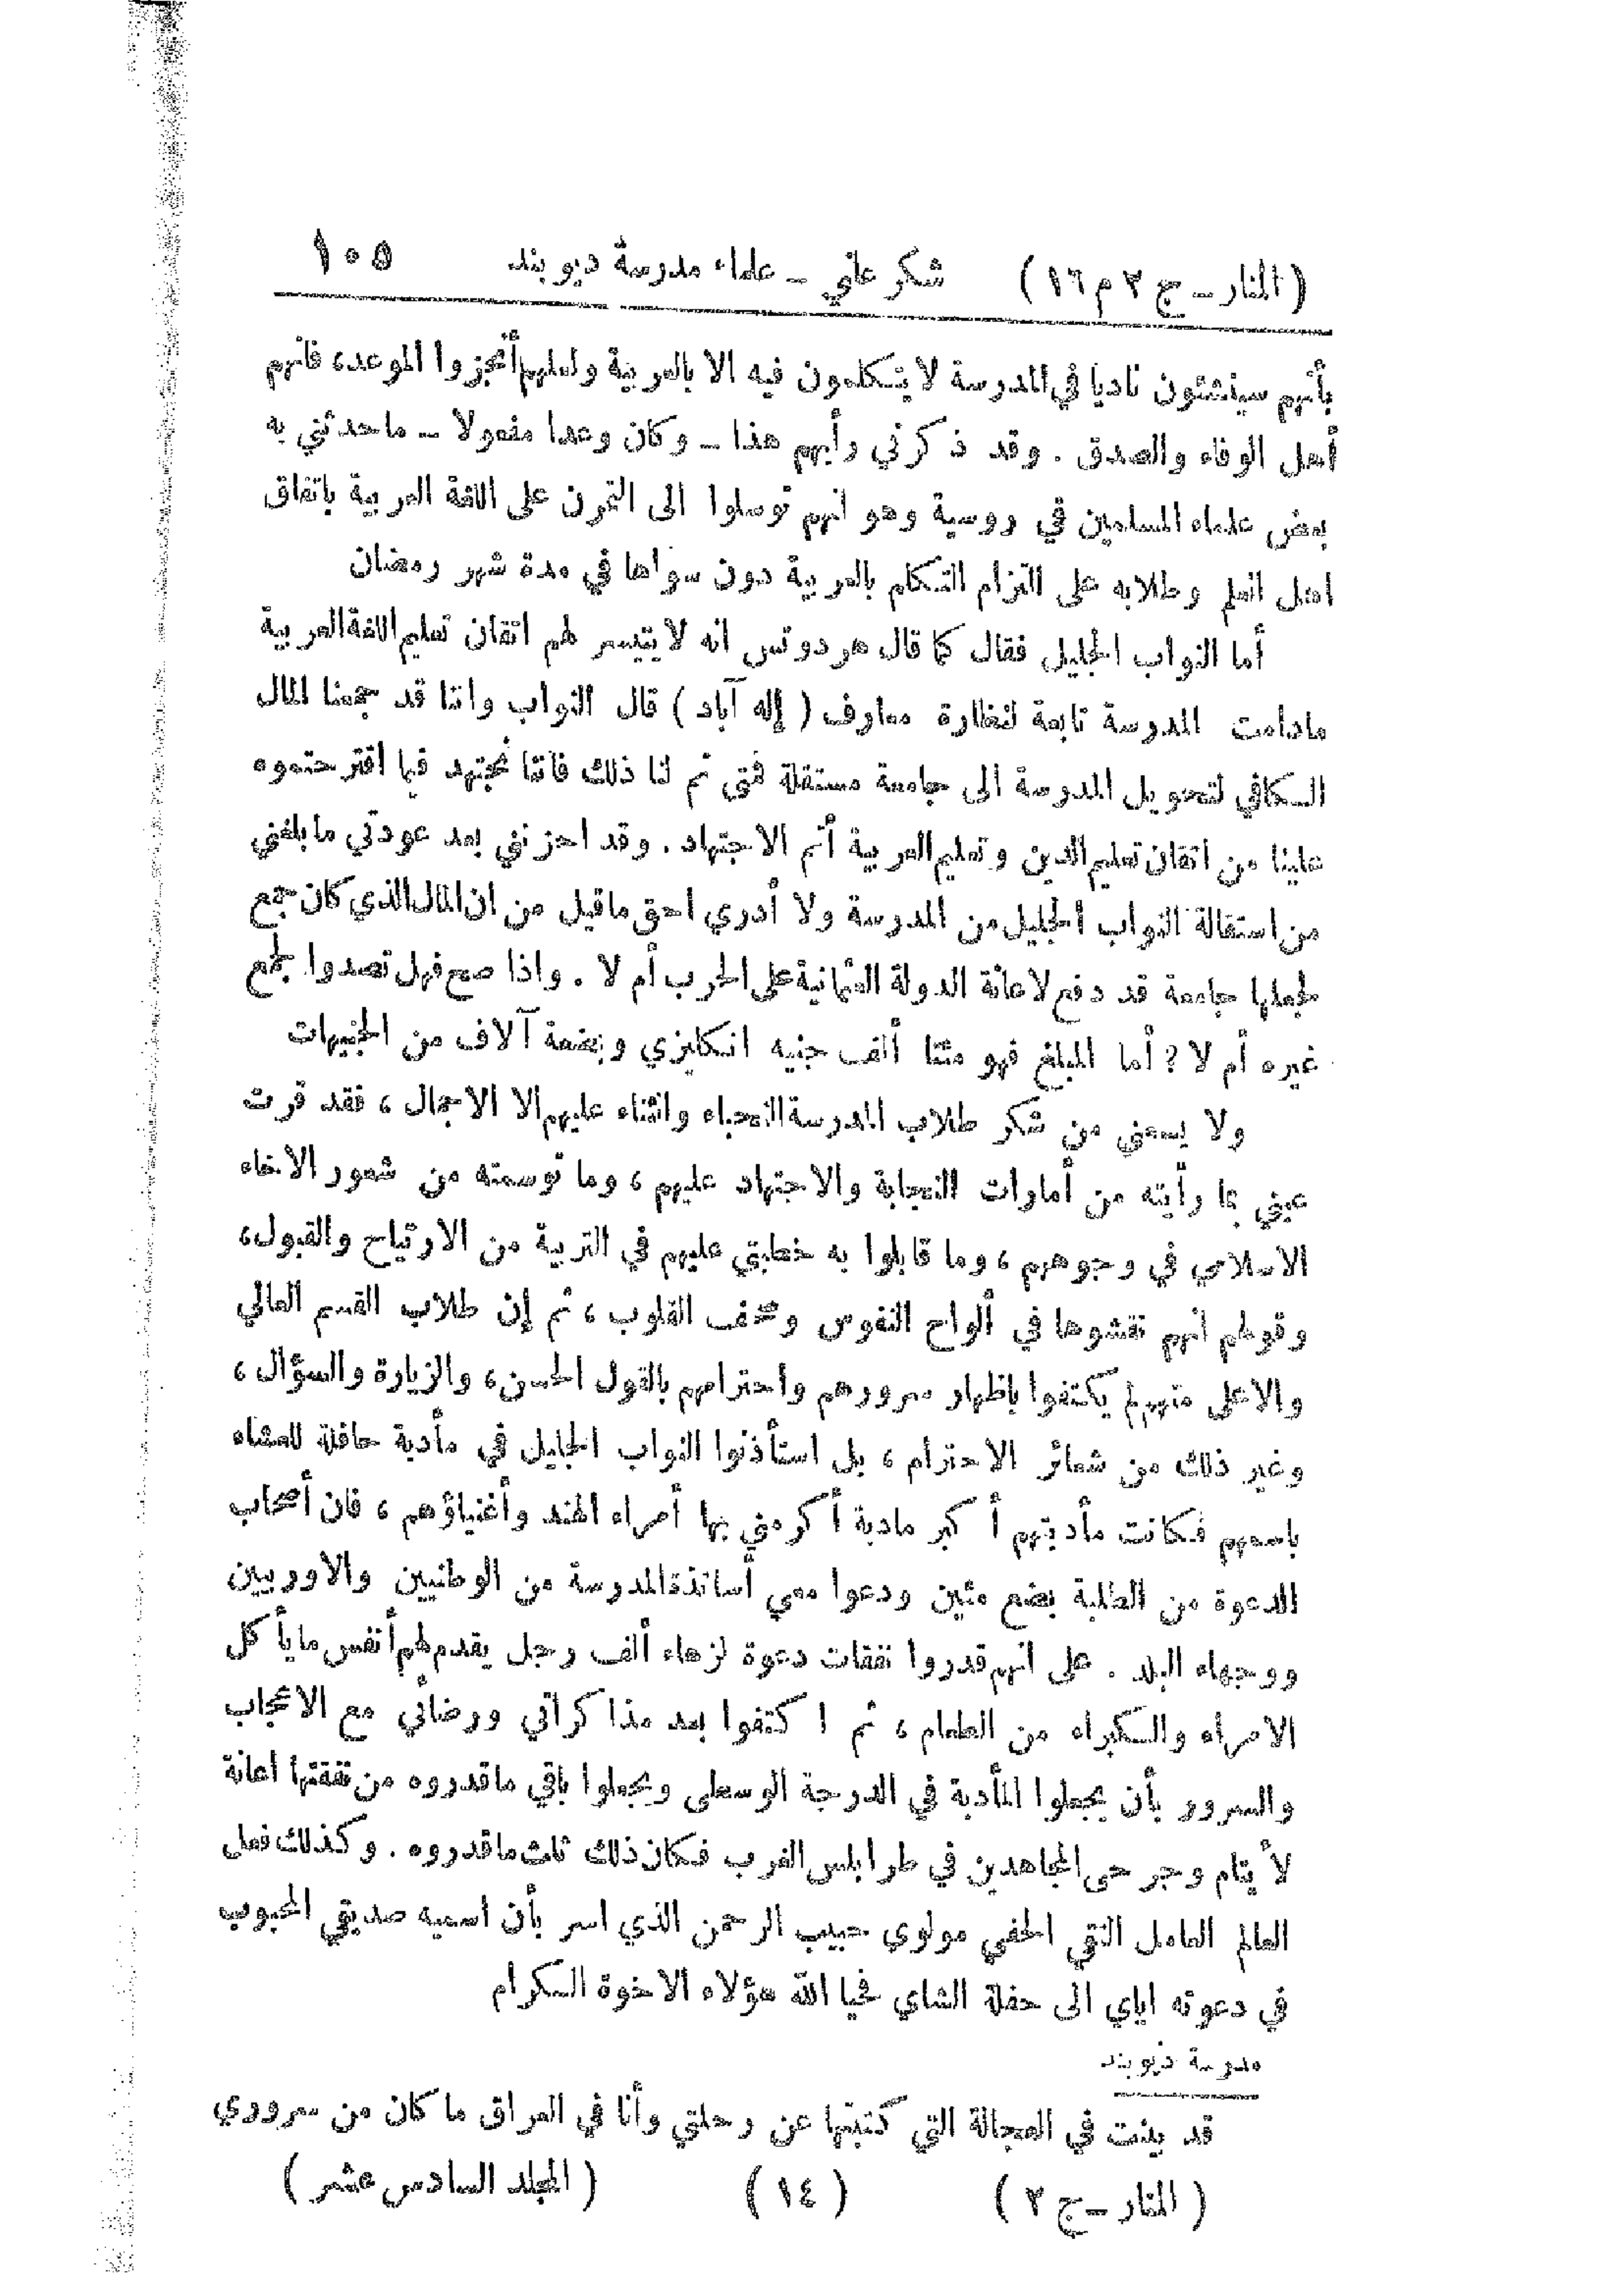 (المنار ـ ج ٢ م ١٦) شكر علني ـ علماء مدرسة ديوبند ١٠٥
بأنهم سينشئون ناديا في المدرسة لا يتكلمون فيه الا بالعربية ولعلهم أنجزوا الموعد، فانهم
أهل الوفاء والصدق . وقد ذكرني رأيهم هذا ــ وكان وعدا مفعولا ــ ماحدثني به
بعض علماء المسلمين في روسية وهو انهم توسلوا الى التمرن على اللغة العربية باتفاق
اهل العلم وطلابه على التزام التكلم بالعربية دون سواها في مدة شهر رمضان
أما النواب الجليل فقال كما قال هردوتس انه لا يتيسر لهم اتقان تعليم اللغة العربية
مادامت المدرسة تابعة لنظارة معارف ( إله آباد ) قال النواب واننا قد جمعنا المال
الكافي لتحويل المدرسة الى جامعة مستقلة فمتى تم لنا ذلك فاننا نجتهد فيما اقترحتموه
علينا من اتقان تعليم الدين وتعليم العربية أتم الاجتهاد . وقد احزنني بعد عودتي مابلغني
من استقالة النواب الجليل من المدرسة ولا أدري احق ماقيل من ان المال الذي كان جمع
لجعلها جامعة قد دفع لاعانة الدولة العثمانية على الحرب أم لا . واذا صح فهل تصدوا لجمع
غيره أم لا ؟ أما المبلغ فهو مئتا ألف جنيه انكليزي وبضعة آلاف من الجنيهات
ولا يسعني من شكر طلاب المدرسة النجباء والثناء عليهم الا الاجمال ، فقد قرت
عيني بما رأيته من أمارات النجابة والاجتهاد عليهم ، وما توسمته من شعور الاخاء
الاسلامي في وجوههم ، وما قابلوا به خطبتي عليهم في التربية من الارتياح والقبول،
وقولهم انهم نقشوها في ألواح النفوس وصحف القلوب ، ثم إن طلاب القسم العالي
والاعلى منهم لم يكتفوا باظهار سرورهم واحترامهم بالقول الحسن، والزيارة والسؤال ،
وغير ذلك من شعائر الاحترام ، بل استأذنوا النواب الجليل في مأدبة حافلة للعشاء
باسمهم فكانت مأدبتهم أكبر مادبة أكرمني بها أمراء الهند وأغنياؤهم ، فان أصحاب
الدعوة من الطلبة بضع مئين ودعوا معي أساتذة المدرسة من الوطنيين والاوربيين
ووجهاء البلد . على انهم قدروا نفقات دعوة لزهاء ألف رجل يقدم لهم أنفس مايأكل
الامراء والكبراء من الطعام ، ثم اكتفوا بعد مذاكراتي ورضائي مع الاعجاب
والسرور بأن يجعلوا المأدبة في الدرجة الوسطى ويجعلوا باقي ماقدروه من نفقتها اعانة
لأيتام وجرحى المجاهدين في طرابلس الغرب فكان ذلك ثلث ماقدروه . وكذلك فعل
العالم العامل التقي الحفي مولوي حبيب الرحمن الذي اسر بأن اسميه صديقي المحبوب
في دعوته اياي الى حفلة الشاي فحيا الله هؤلاء الاخوة الكرام
مدرسة ديوبند
قد بينت في العجالة التي كتبتها عن رحلتي وأنا في العراق ما كان من سروري
(المنار ـ ج ٢) (١٤) (المجلد السادس عشر)